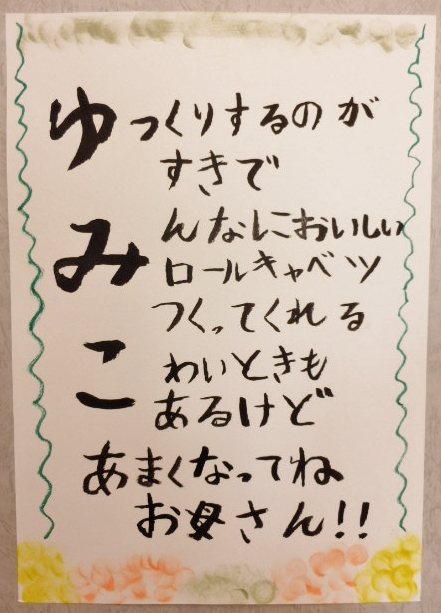 ゆっくりするのが
すきで
みんなにおいしい
ロールキャベツ
つくってくれる
こわいときも
あるけど
あまくなってね
お母さん!!